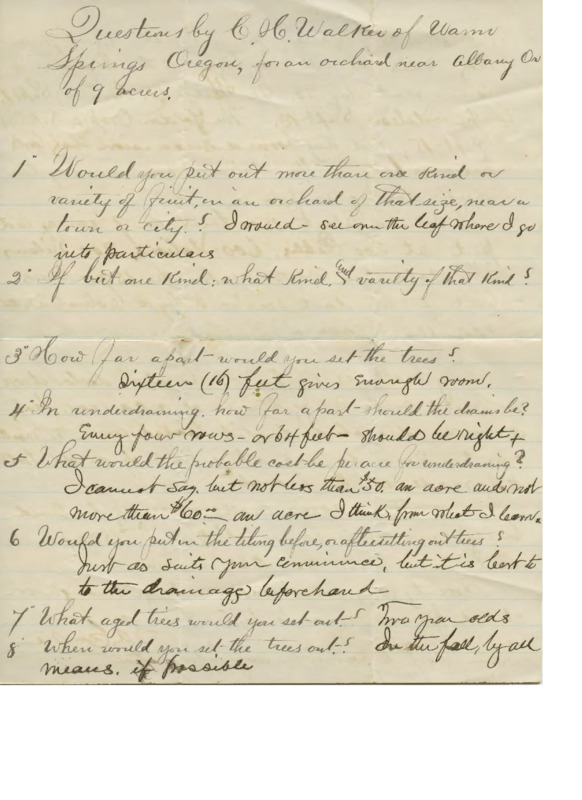 Questions by C. H. Walker of Warm
Springs Oregon, for an orchard near Albany Or
of 9 acres.
1" Would you put out more than one kind or
variety of fruit, in an orchard of that size, near a
town or city? I would - see on the leaf where I go
into particulars
2" If but one Kind; what Kind, and variety of that Kind?
3" How far apart would you set the trees?
Sixteen (16) feet gives enough room.
4" In underdraining, how far apart should the drains be?
Every four rows - or 64 feet - should be right +
5 What would the probable cost be per acre for underdraining?
I cannot say, but not less than $50. an acre and not
more than $60.00 an acre I think, from what I learn.
6 Would you put in the tiling before, or after setting out trees?
Just as suits your convenience, but it is best to
to the drainage beforehand
7" What aged trees would you set out? Two year olds
8" When would you set the trees out? In the fall, by all
means. if possible